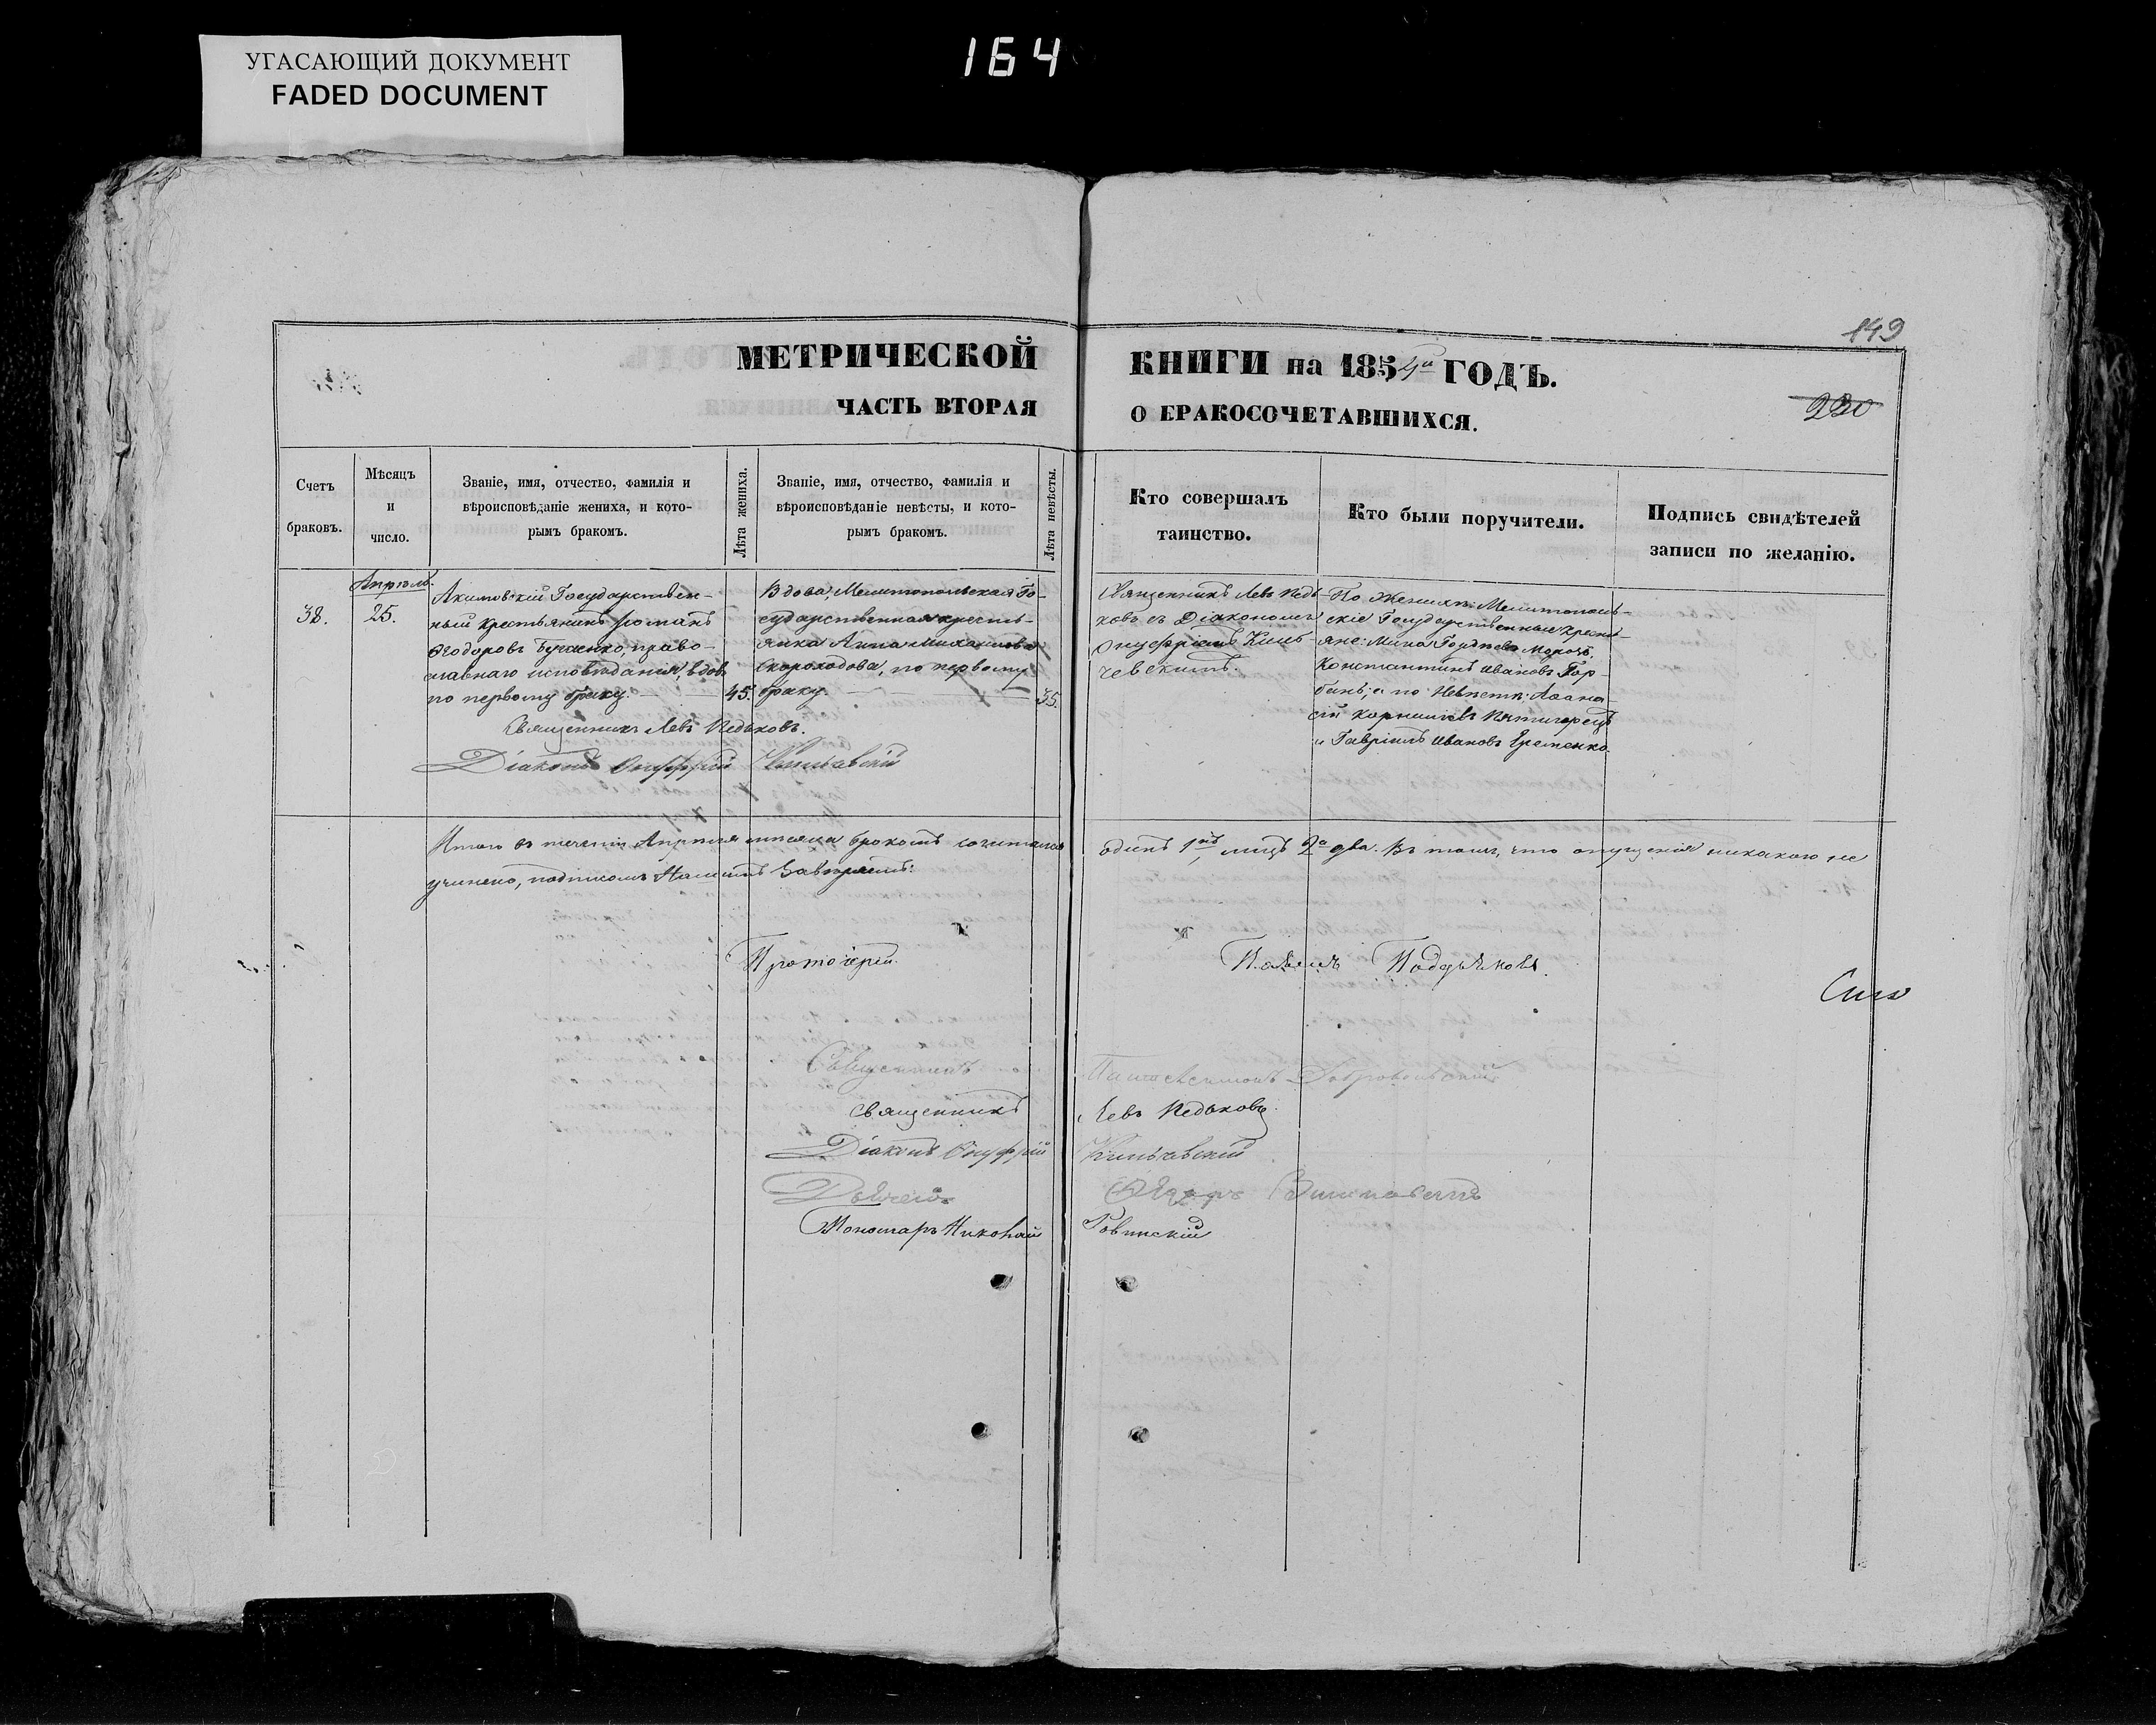 УГАСАЮЩИЙ ДОКУМЕНТ
FADED DOCUMENT
164
149
МЕТРИЧЕСКОЙ КНИГИ на 1854й ГОДЪ.
ЧАСТЬ ВТОРАЯ О БРАКОСОЧЕТАВШИХСЯ.
230
Счетъ браковъ.
Мѣсяцъ и число.
Званіе, имя, отчество, фамилія и
вѣроисповѣданіе жениха, и кото-
рымъ бракомъ.
Лѣта жениха.
Званіе, имя, отчество, фамилія и
вѣроисповѣданіе невѣсты, и кото-
рымъ бракомъ.
Лѣта невѣсты.
Кто совершалъ
таинство.
Кто были поручители.
Подпись свидѣтелей
записи по желанію.
38.
Апрѣль.
25.
Акимовскій Государствен-
ный крестьянинъ Романъ
Ѳеодоровъ право-
славнаго исповѣданія, вдовъ
по первому браку.
45.
Вдова, Мелитопольская Го-
сударственная кресть-
янка Анна Михайлова
Скороходова, по первому
браку.
35.
Священникъ Левъ Педь-
ковъ съ Діакономъ
Онуфріемъ Киль-
чевскимъ.
По Женихѣ: Мелитополь-
скіе Государственные кресть-
яне: Мина Гордѣевъ Морозъ,
Константинъ Ивановъ Гор-
бань; а по Невѣстѣ: Аѳана-
сій Корниліевъ Пятигорецъ
и Гавріилъ Ивановъ Еременко.
Священникъ Левъ Педьковъ.
Діаконъ Онуфрій Кильчевскій
Итого въ теченіи Апрѣля мѣсяца бракомъ сочетался одинъ 1нъ, лицъ 2а два. Въ томъ, что опущенія никакого не
учинено, подписомъ Нашимъ Завѣряемъ:
Протоіерей Павелъ Поддьяковъ.
Сихъ
Священникъ
Священникъ Левъ Педьковъ.
Діаконъ Онуфрій Кильчевскій
Дьячекъ
Пономарь Николай Ровинскій